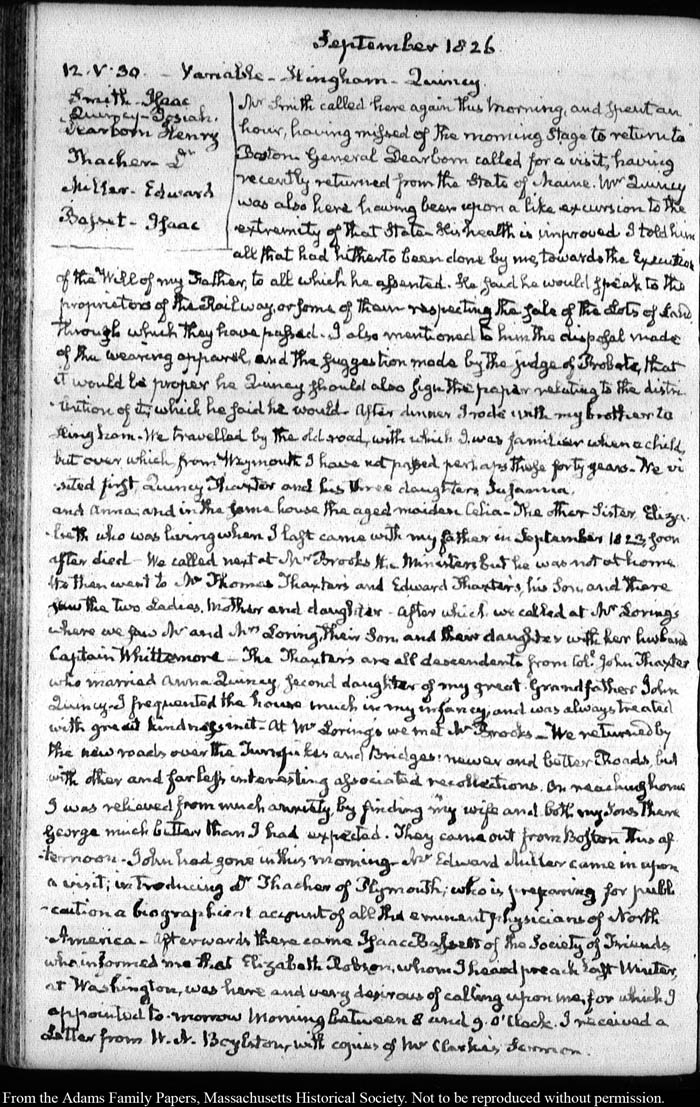 September 1826
12. V. 30. - Variable - Hingham - Quincy
Smith - Isaac
Quincy - Josiah.
Dearborn Henry
Thacher - Dr
Miller - Edward
Basset - Isaac
Mr Smith called here again this morning, and spent an
hour, having missed of the morning Stage to return to
Boston. General Dearborn called for a visit, having
recently returned from the State of Maine. Mr Quincy
was also here having been upon a like excursion to the
extremity of that State - His health is improved. I told him
all that had hitherto been done by me, towards the Execution
of the Will of my Father, to all which he assented. He said he would speak to the
proprietors of the Rail way, or some of them respecting the sale of the Lots of Land
through which they have passed. I also mentioned to him the disposal made
of the wearing apparel, and the suggestion made by the judge of Probate, that
it would be proper he Quincy should also sign the paper relating to the distri-
-bution of it, which he said he would. After dinner I rode with my brother to
Hingham. We travelled by the old road, with which I was familiar when a child,
but over which from Weymouth I have not passed perhaps these forty years. We vi
sited first, Quincy Thaxter and his three daughters, Susanna,
and Anna; and in the same house the aged maiden Celia - The other Sister Eliza-
beth who was living when I last came with my father in September 1823, soon
after died - We called next at Mr Brooks the Ministers but he was not at home
We then went to Mr Thomas Thaxters and Edward Thaxters, his Son, and there
saw the two Ladies, Mother and daughter - After which we called at Mr Lorings
where we saw Mr and Mrs Loring, their Son and their daughter with her husband
Captain Whittemore - The Thaxters are all descendents from Col. John Thaxter
who married Anna Quincy, second daughter of my great Grandfather John
Quincy - I frequented the house much in my infancy, and was always treated
with great kindness in it - At Mr Lorings we met Mr Brooks - We returned by
the new roads over the Turnpikes and Bridges: newer and better Roads, but
with other and far less interesting associated recollections. On reaching home
I was relieved from much anxiety, by finding my wife and both my Sons there
George much better than I had expected. They came out from Boston this af-
-ternoon - John had gone in this morning - Mr Edward Miller came in upon
a visit; introducing Dr Thacher of Plymouth; who is preparing for publi
-cation a biographical account of all the eminent physicians of North
America - Afterwards there came Isaac Bassett of the Society of Friends
who informed me that Elizabeth Robson, whom I heard preach last Winter,
at Washington, was here and very desirous of calling upon me, for which I
appointed to-morrow Morning between 8 and 9. O'Clock. I received a
Letter from W. N. Boylston, with copies of Mr Clarke's Sermon.
From the Adams Family Papers, Massachusetts Historical Society. Not to be reproduced without permission.